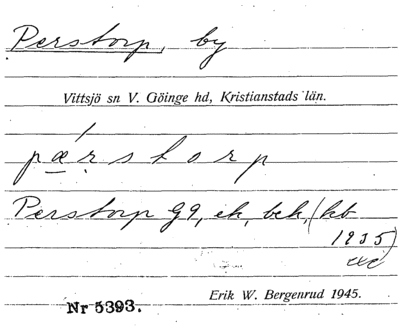 Perstorp, by
Vittsjö sn V. Göinge hd, Kristianstads län.
pǽrstorp
Perstorp G9, ek, bek, (kb
1935)
Erik W. Bergenrud 1945.
Nr 5393.